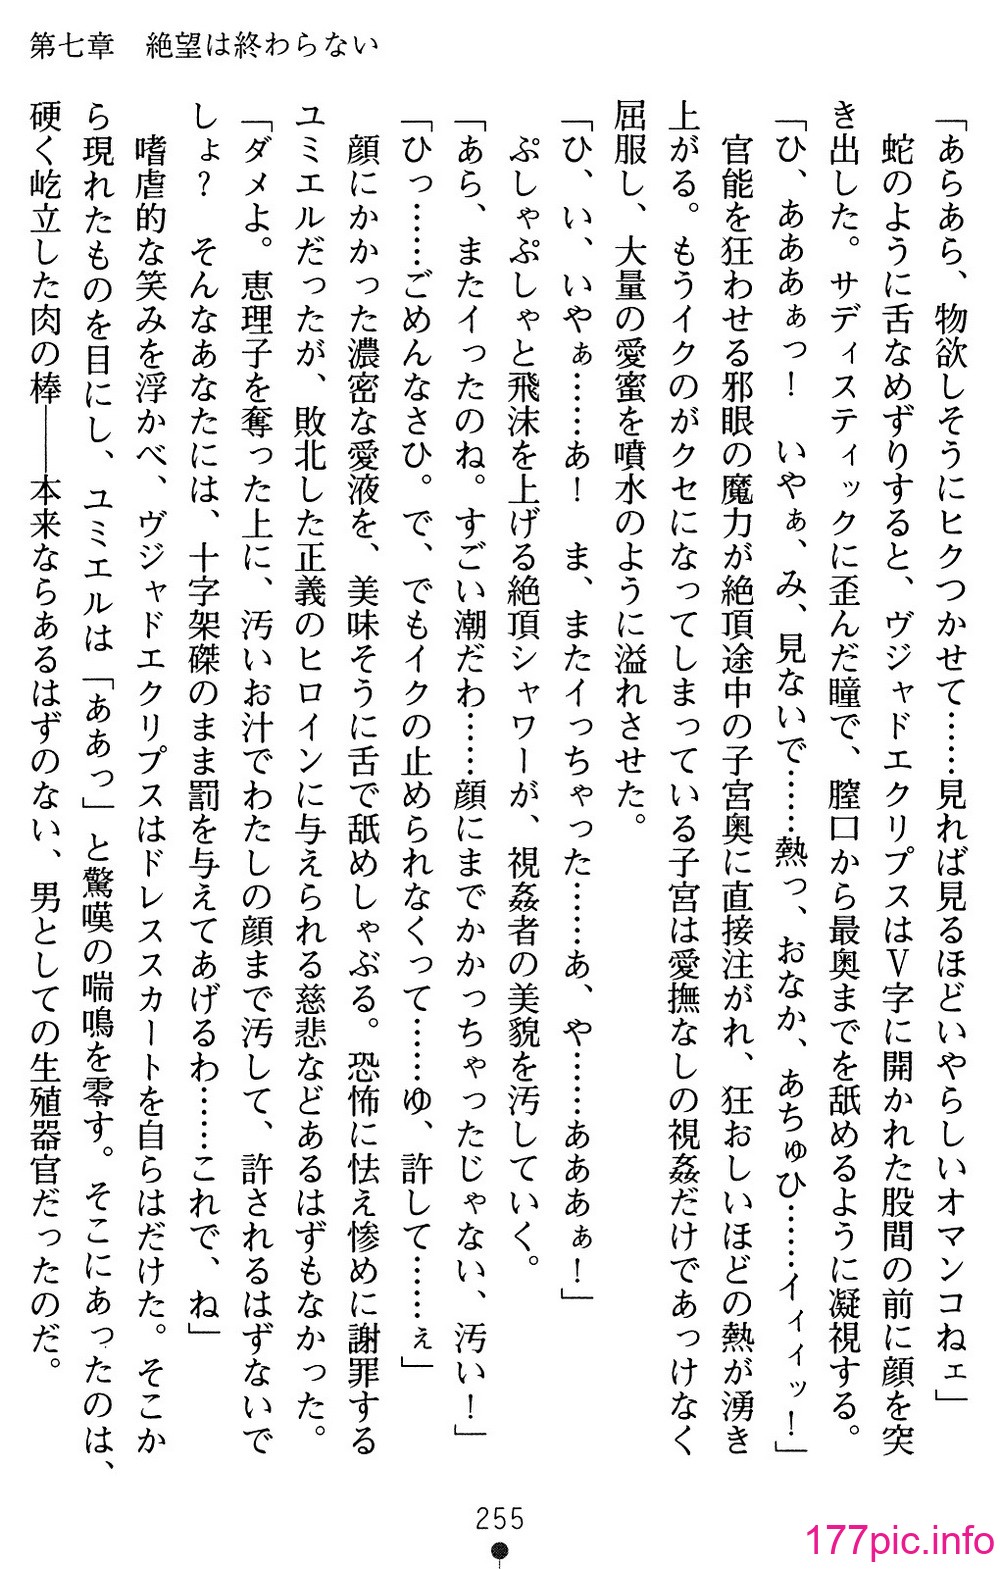 第七章　絶望は終わらない
「あらあら、物欲しそうにヒクつかせて……見れば見るほどいやらしいオマンコねェ」
　蛇のように舌なめずりすると、ヴジャドエクリプスはＶ字に開かれた股間の前に顔を突
き出した。サディスティックに歪んだ瞳で、膣口から最奥までを舐めるように凝視する。
「ひ、あああぁっ！　いやぁ、み、見ないで……熱っ、おなか、あちゅひ……イィィッ！」
　官能を狂わせる邪眼の魔力が絶頂途中の子宮奥に直接注がれ、狂おしいほどの熱が湧き
上がる。もうイクのがクセになってしまっている子宮は愛撫なしの視姦だけであっけなく
屈服し、大量の愛蜜を噴水のように溢れさせた。
「ひ、い、いやぁ……あ！　ま、またイっちゃった……あ、や……あああぁ！」
　ぷしゃぷしゃと飛沫を上げる絶頂シャワーが、視姦者の美貌を汚していく。
「あら、またイったのね。すごい潮だわ……顔にまでかかっちゃったじゃない、汚い！」
「ひっ……ごめんなさひ。で、でもイクの止められなくって……ゆ、許して……ぇ」
　顔にかかった濃密な愛液を、美味そうに舌で舐めしゃぶる。恐怖に怯え惨めに謝罪する
ユミエルだったが、敗北した正義のヒロインに与えられる慈悲などあるはずもなかった。
「ダメよ。恵理子を奪った上に、汚いお汁でわたしの顔まで汚して、許されるはずないで
しょ？　そんなあなたには、十字架磔のまま罰を与えてあげるわ……これで、ね」
　嗜虐的な笑みを浮かべ、ヴジャドエクリプスはドレススカートを自らはだけた。そこか
ら現れたものを目にし、ユミエルは「ああっ」と驚嘆の喘鳴を零す。そこにあったのは、
硬く屹立した肉の棒――本来ならあるはずのない、男としての生殖器官だったのだ。
255
177pic.info